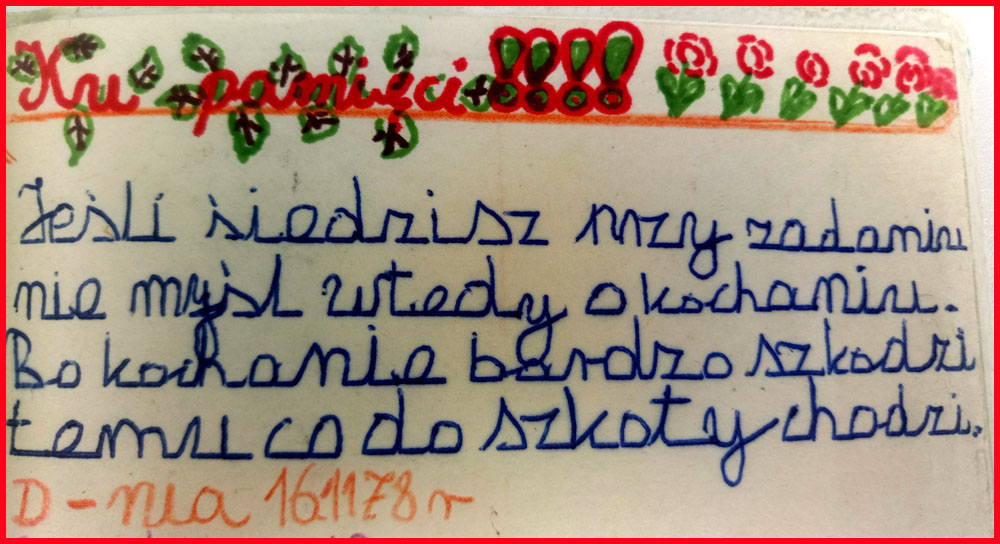 Ku pamięci!!!!
Jeśli siedzisz przy zadaniu
nie myśl wtedy o kochaniu.
Bo kochanie bardzo szkodzi
temu co do szkoły chodzi.
D-nia 161178r